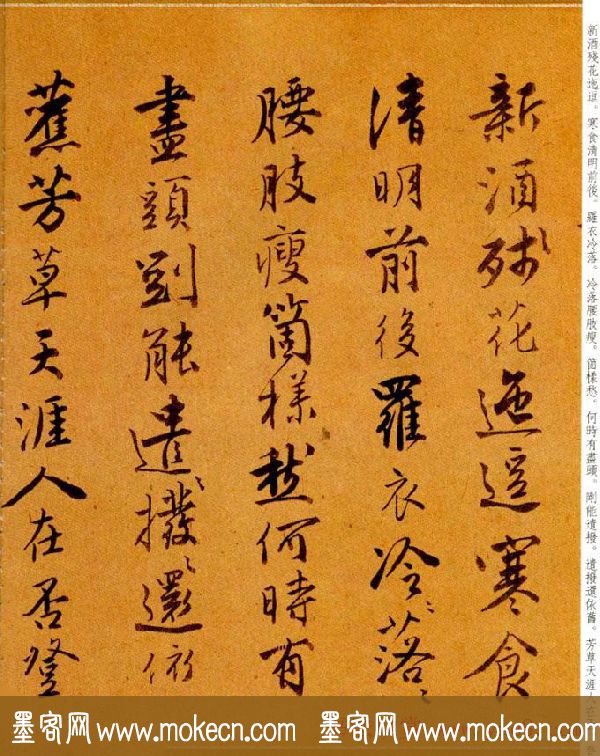 新酒殘花迤逗。寒食清明前後。羅衣冷落。冷落腰肢瘦。箇樣愁。何時有盡頭。剛能遣撥。遣撥還依舊。芳草天涯人在
新酒殘花迤逗寒食
清明前後羅衣冷〻落〻
腰肢瘦箇樣愁何時有
盡頭剛能遣〻撥〻還依
舊芳草天涯人在否登
墨客网 www.mokecn.com 墨客网 www.mokecn.com